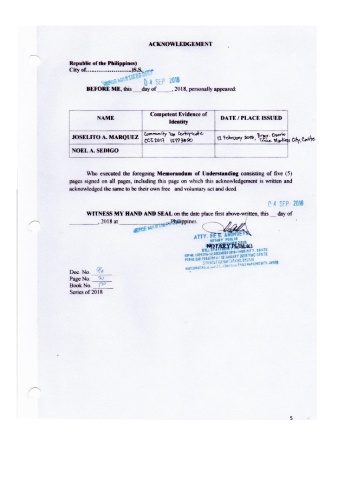 ACKNOWLEDGEMENT
Republic of the Philippines)
City of……………………)S.S.
04 SEP 2018
BEFORE ME, this ___ day of ______, 2018, personally appeared:
NAME
Competent Evidence of Identity
DATE / PLACE ISSUED
JOSELITO A. MARQUEZ
Community Tax Certificate
CCI 2017
12 February 2018,
City, Cavite
NOEL A. SEDIGO
Who executed the foregoing Memorandum of Understanding consisting of five (5)
pages signed on all pages, including this page on which this acknowledgement is written and
acknowledged the same to be their own free and voluntary act and deed.
04 SEP 2018
WITNESS MY HAND AND SEAL on the date place first above-written, this __ day of
________, 2018 at ____________, Philippines.
ATTY.
NOTARY PUBLIC
Doc. No.
Page No.
Book No.
Series of 2018
5